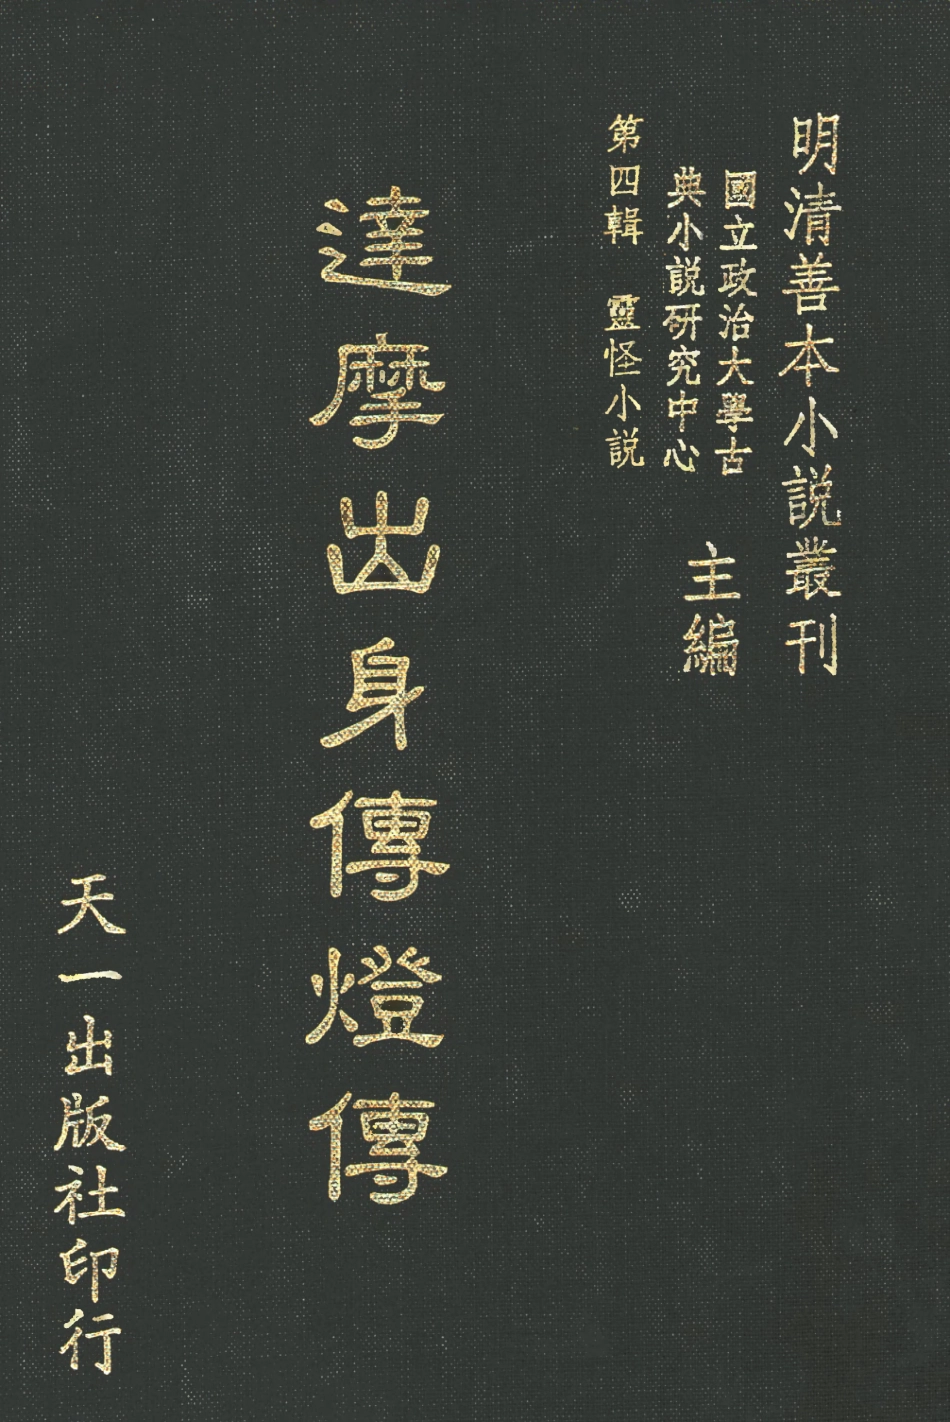 明清善本小説叢刊
國立政治大學古
典小説研究中心
主編
第四輯　靈怪小説
達摩出身傳燈傳
天一出版社印行